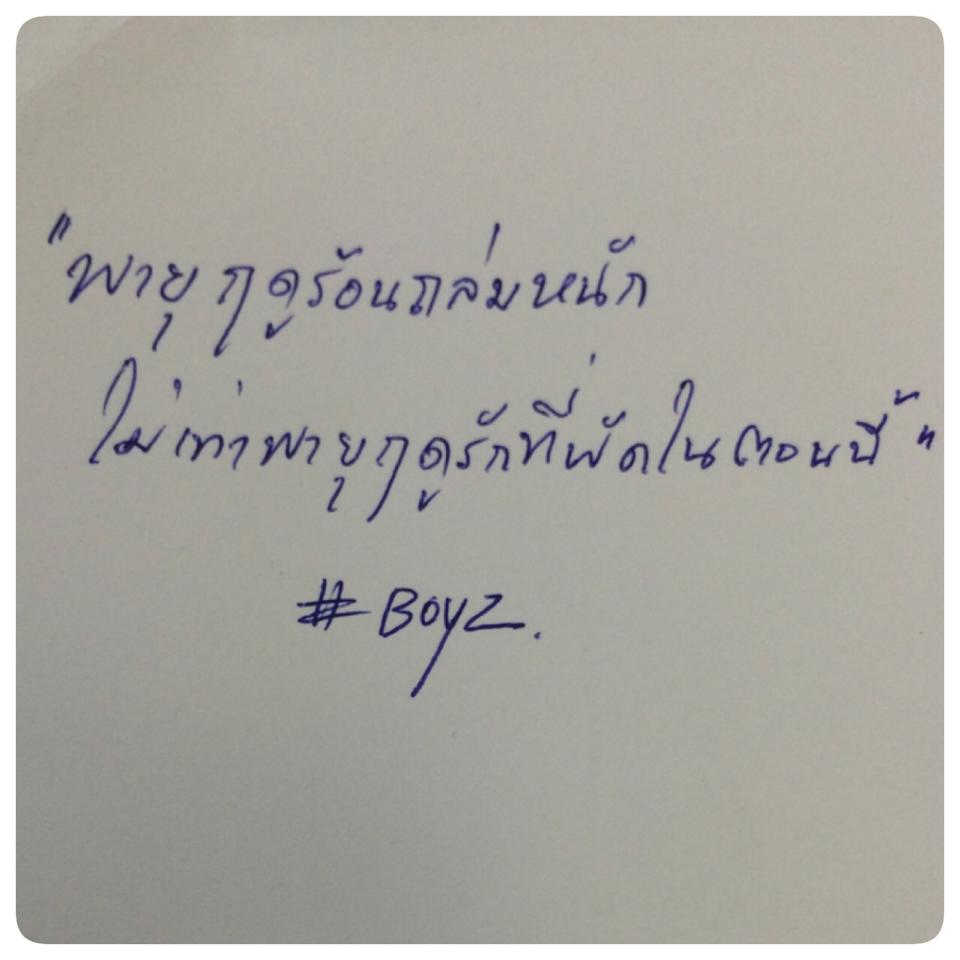 "พายุฤดูร้อนถล่มหนัก
ไม่เท่าพายุฤดูรักที่พัดในตอนนี้"
#BOYZ.